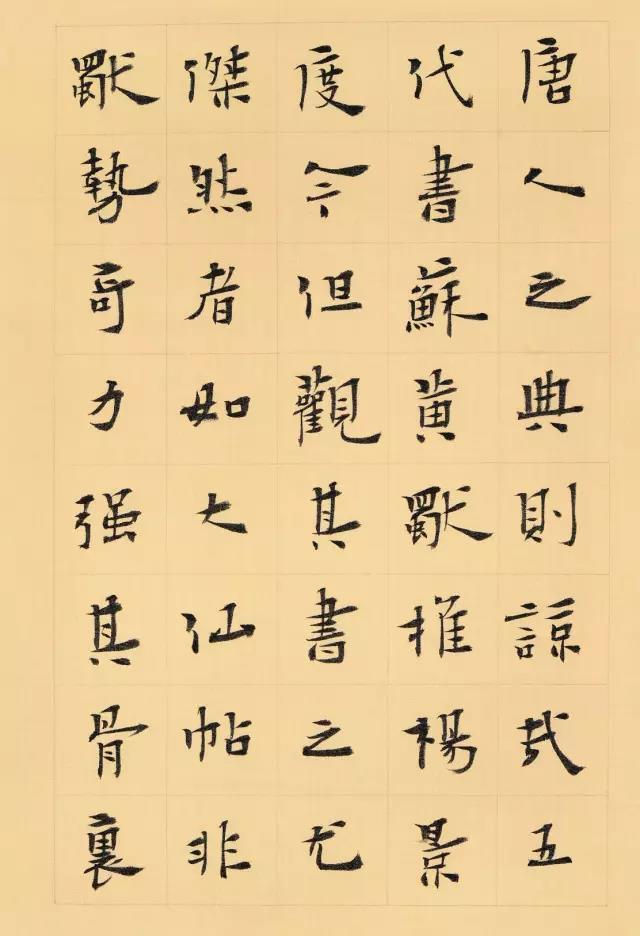 唐人之典則諒哉五
代書蘇黄獸推楊景
度今但觀其書之尤
傑然者如大仙帖非
獸勢奇力强其骨裏